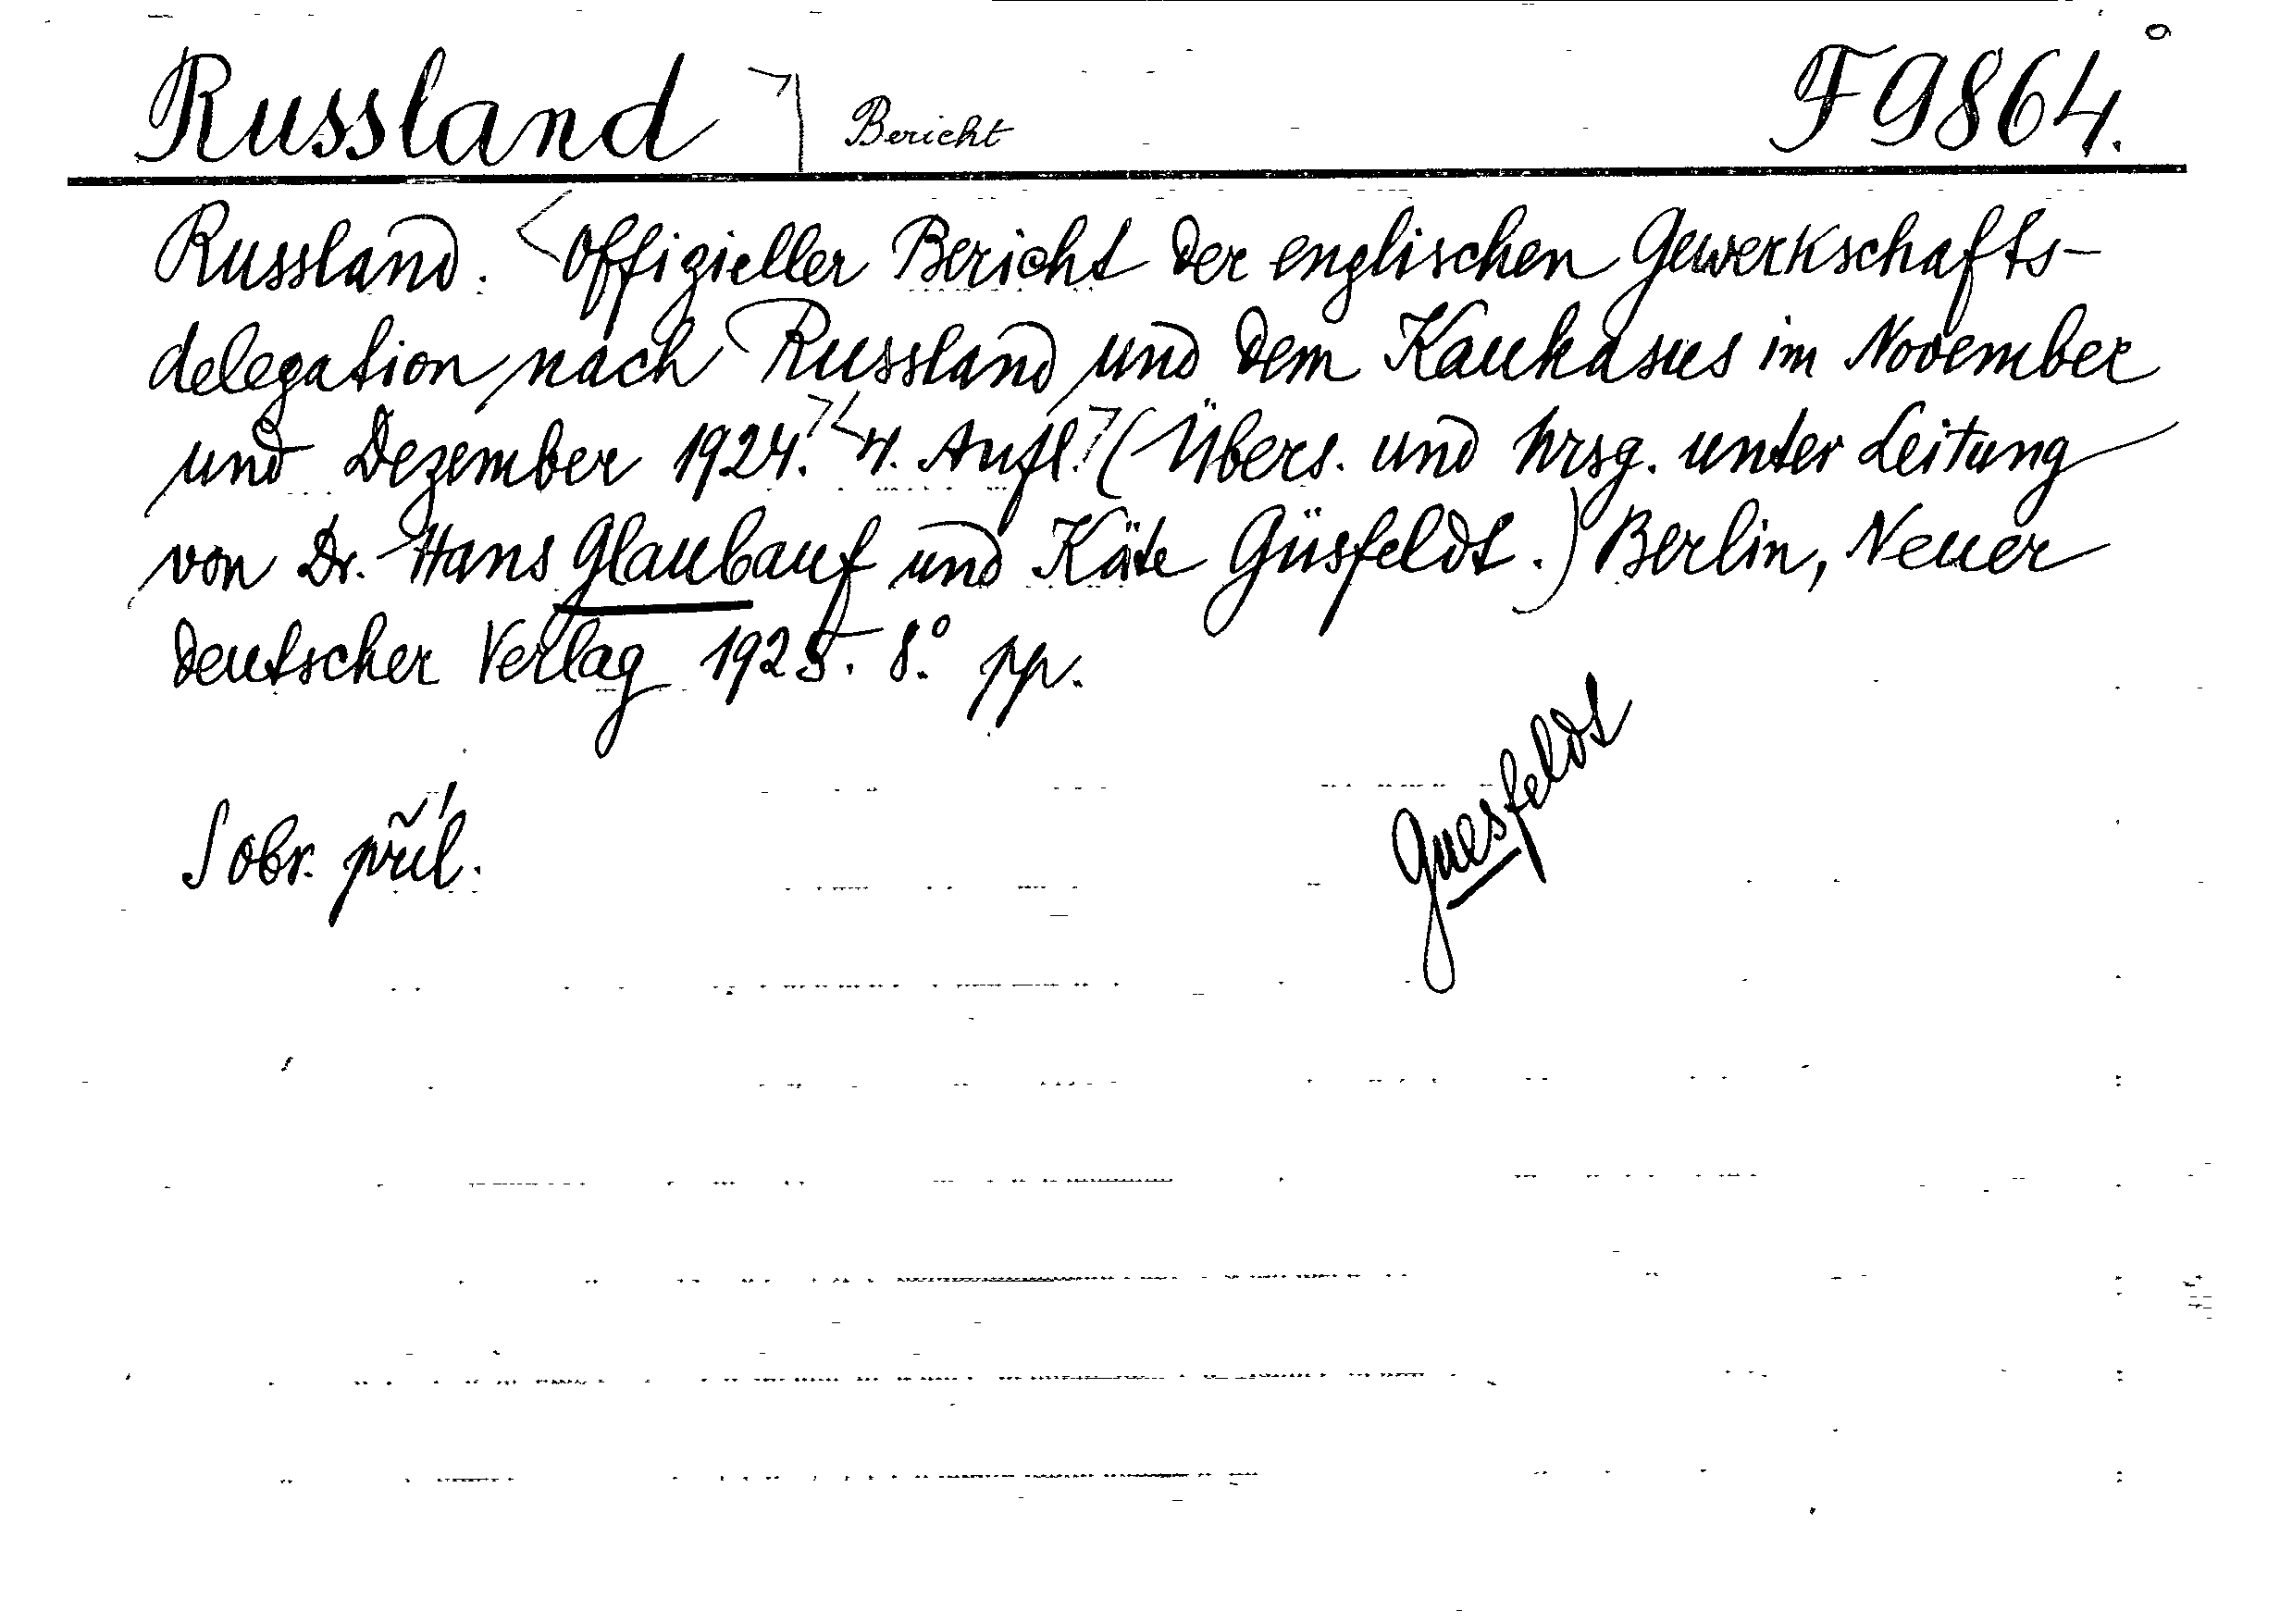 Russland Bericht F 9864.
Russland. Offizieller Bericht der englischen Gewerkschafts-
delegation nach Russland und dem Kaukasus im November
und Dezember 1924. 4. Aufl. (Übers. und hrsg. unter Leitung
von Dr. Hans Glaubauf und Käte Güsfeldt.) Berlin, Neuer
deutscher Verlag 1925. 8.° pp.
S obr. příl.
Guesfeldt